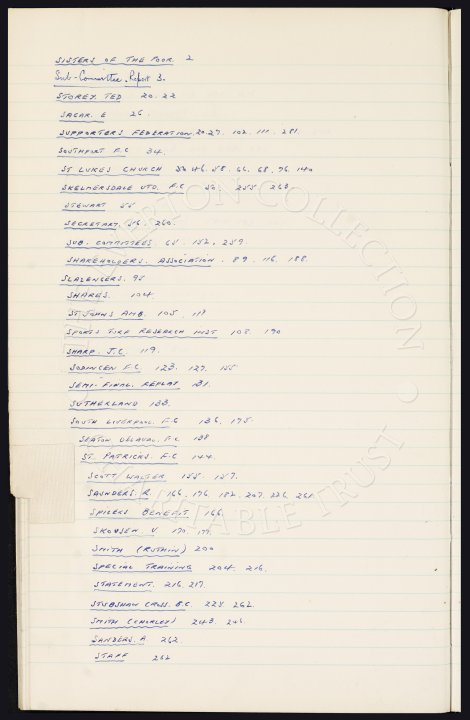 SISTERS OF THE POOR. 2
Sub-Committee. Report 3.
STOREY TED 20.22
SAGAR. E 26.
SUPPORTERS FEDERATION. 20.27. 102. 111. 281.
SOUTHPORT F.C 34.
ST LUKES CHURCH 46. 58. 66. 68. 96. 140
SKELMERSDALE UTD. F.C 255 268
STEWART 55
SECRETARY. 56. 260.
SUB. COMMITTEES 65. 152. 259
SHAREHOLDERS. ASSOCIATION. 89. 116. 188.
SLAZENGERS. 95
SHARES. 104.
ST. JOHNS AMB. 105. 117
SPORTS TURF RESEARCH INST 108. 190
SHARP. J.C. 119.
SODINGEN F.C 123. 127. 155
SEMI-FINAL. REPLAY 131.
SUTHERLAND 133.
SOUTH LIVERPOOL. F.C 136. 175.
SEATON DELAVAL. F.C. 138
ST. PATRICKS. F.C 144.
SCOTT WALTER 155 157.
SAUNDERS. R. 166. 176. 182. 207. 226. 261.
SPICERS BENEFIT. 166.
V 170. 177.
SMITH (RUTHIN) 200
SPECIAL TRAINING 204. 216.
STATEMENT. 216. 217.
STUBSHAW CROSS. B.C. 228. 262.
SMITH (CHORLEY) 243. 246.
SANDERS. A 262
STAFF 262
EVERTON COLLECTION
CHARITABLE TRUST